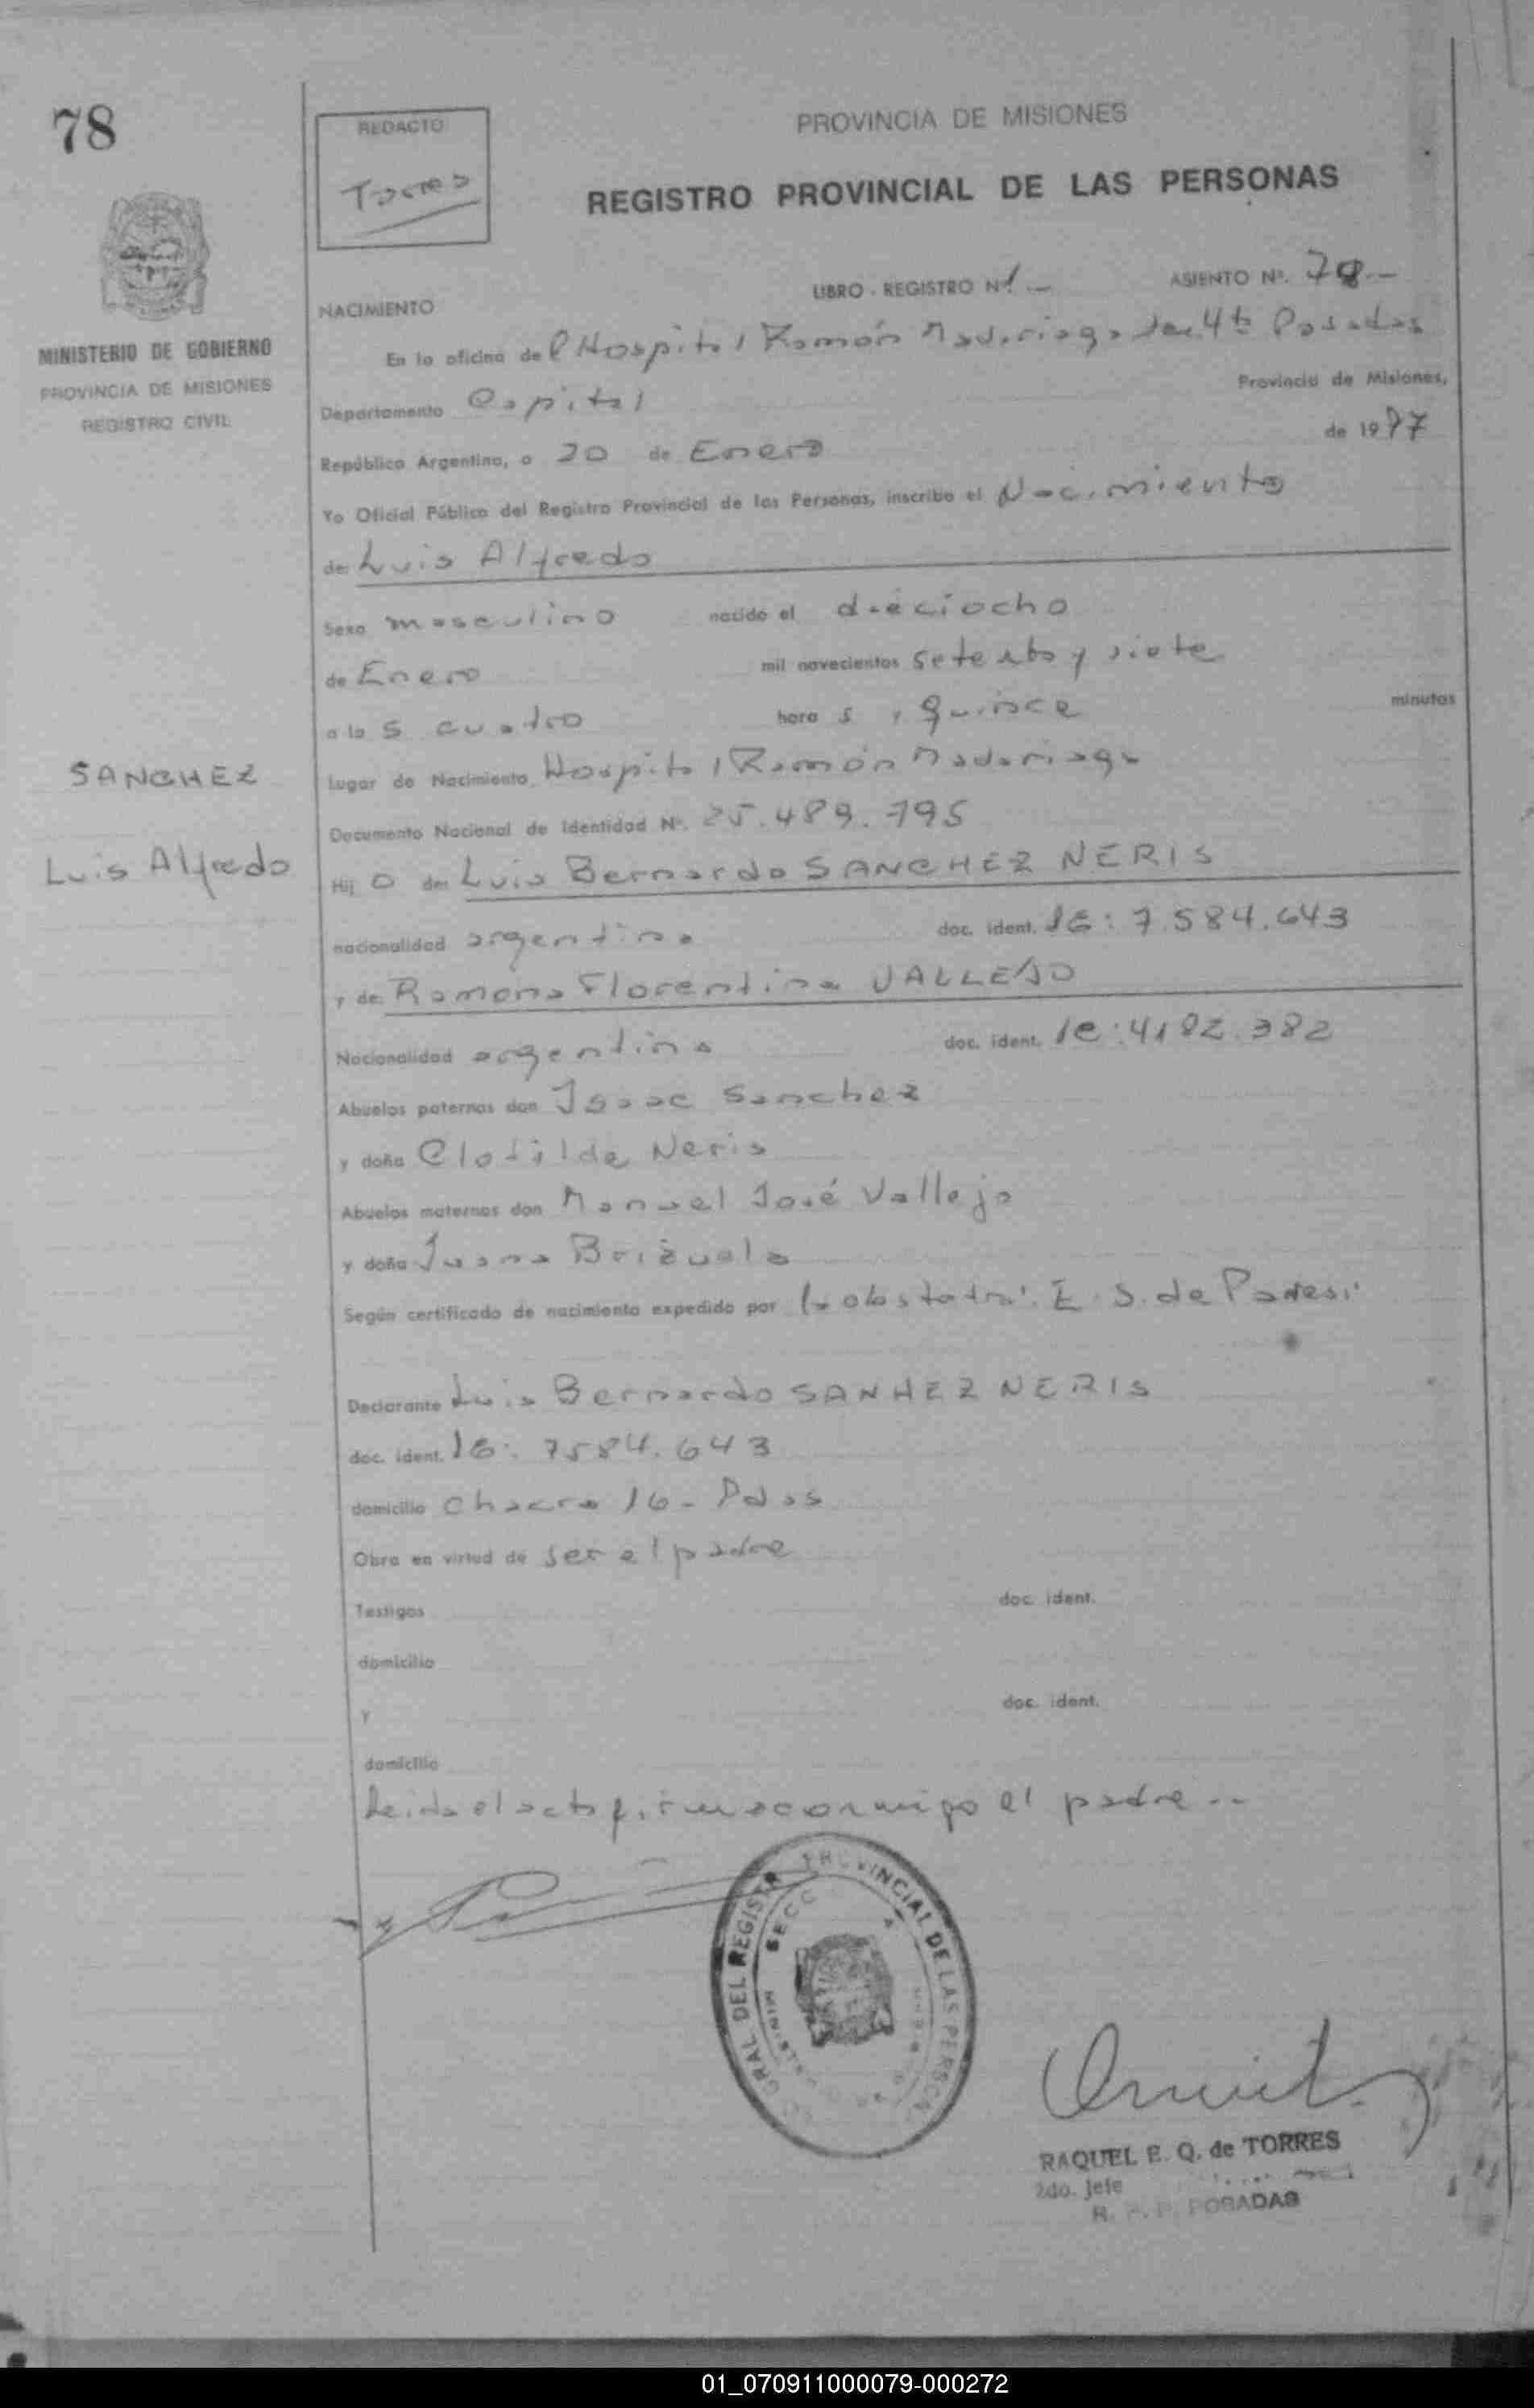 78
REDACTO
Torres
PROVINCIA DE MISIONES
REGISTRO PROVINCIAL DE LAS PERSONAS
MINISTERIO DE GOBIERNO
PROVINCIA DE MISIONES
REGISTRO CIVIL
LIBRO - REGISTRO Nº 1.- ASIENTO Nº. 78.-
NACIMIENTO
En la oficina del Hospital Ramón Madariaga Sec. 4ta Posadas
Departamento Capital Provincia de Misiones,
República Argentina, a 20 de Enero de 1977
Yo Oficial Público del Registro Provincial de las Personas, inscribo el Nacimiento
de Luis Alfredo
Sexo masculino nacido el dieciocho
de Enero mil novecientos setenta y siete
a las cuatro horas y quince minutos
Lugar de Nacimiento Hospital Ramón Madariaga
Documento Nacional de Identidad Nº. 25.489.795
SANCHEZ
Luis Alfredo
Hijo de Luis Bernardo SANCHEZ NERIS
nacionalidad argentina doc. ident. IE: 7.584.643
y de Ramona Florentina VALLEJO
Nacionalidad argentina doc. ident. lc: 4182.382
Abuelos paternos don Isaac Sanchez
y doña Clotilde Neris
Abuelos maternos don Manuel José Vallejo
y doña Juana Brizuela
Según certificado de nacimiento expedido por la E. S. de
Declarante Luis Bernardo SANHEZ NERIS
doc. ident. IE: 7584.643
domicilio Chacra 16- Pdas
Obra en virtud de ser el padre
Testigos doc. ident.
domicilio
y doc. ident.
domicilio
Leida el acta firma conmigo el padre..
GRAL DEL REGISTR PROVINCIAL DE LAS PERSON
SECC
RAQUEL E. Q. de TORRES
2do. Jefe
R. P. P. POSADAS
01_070911000079-000272